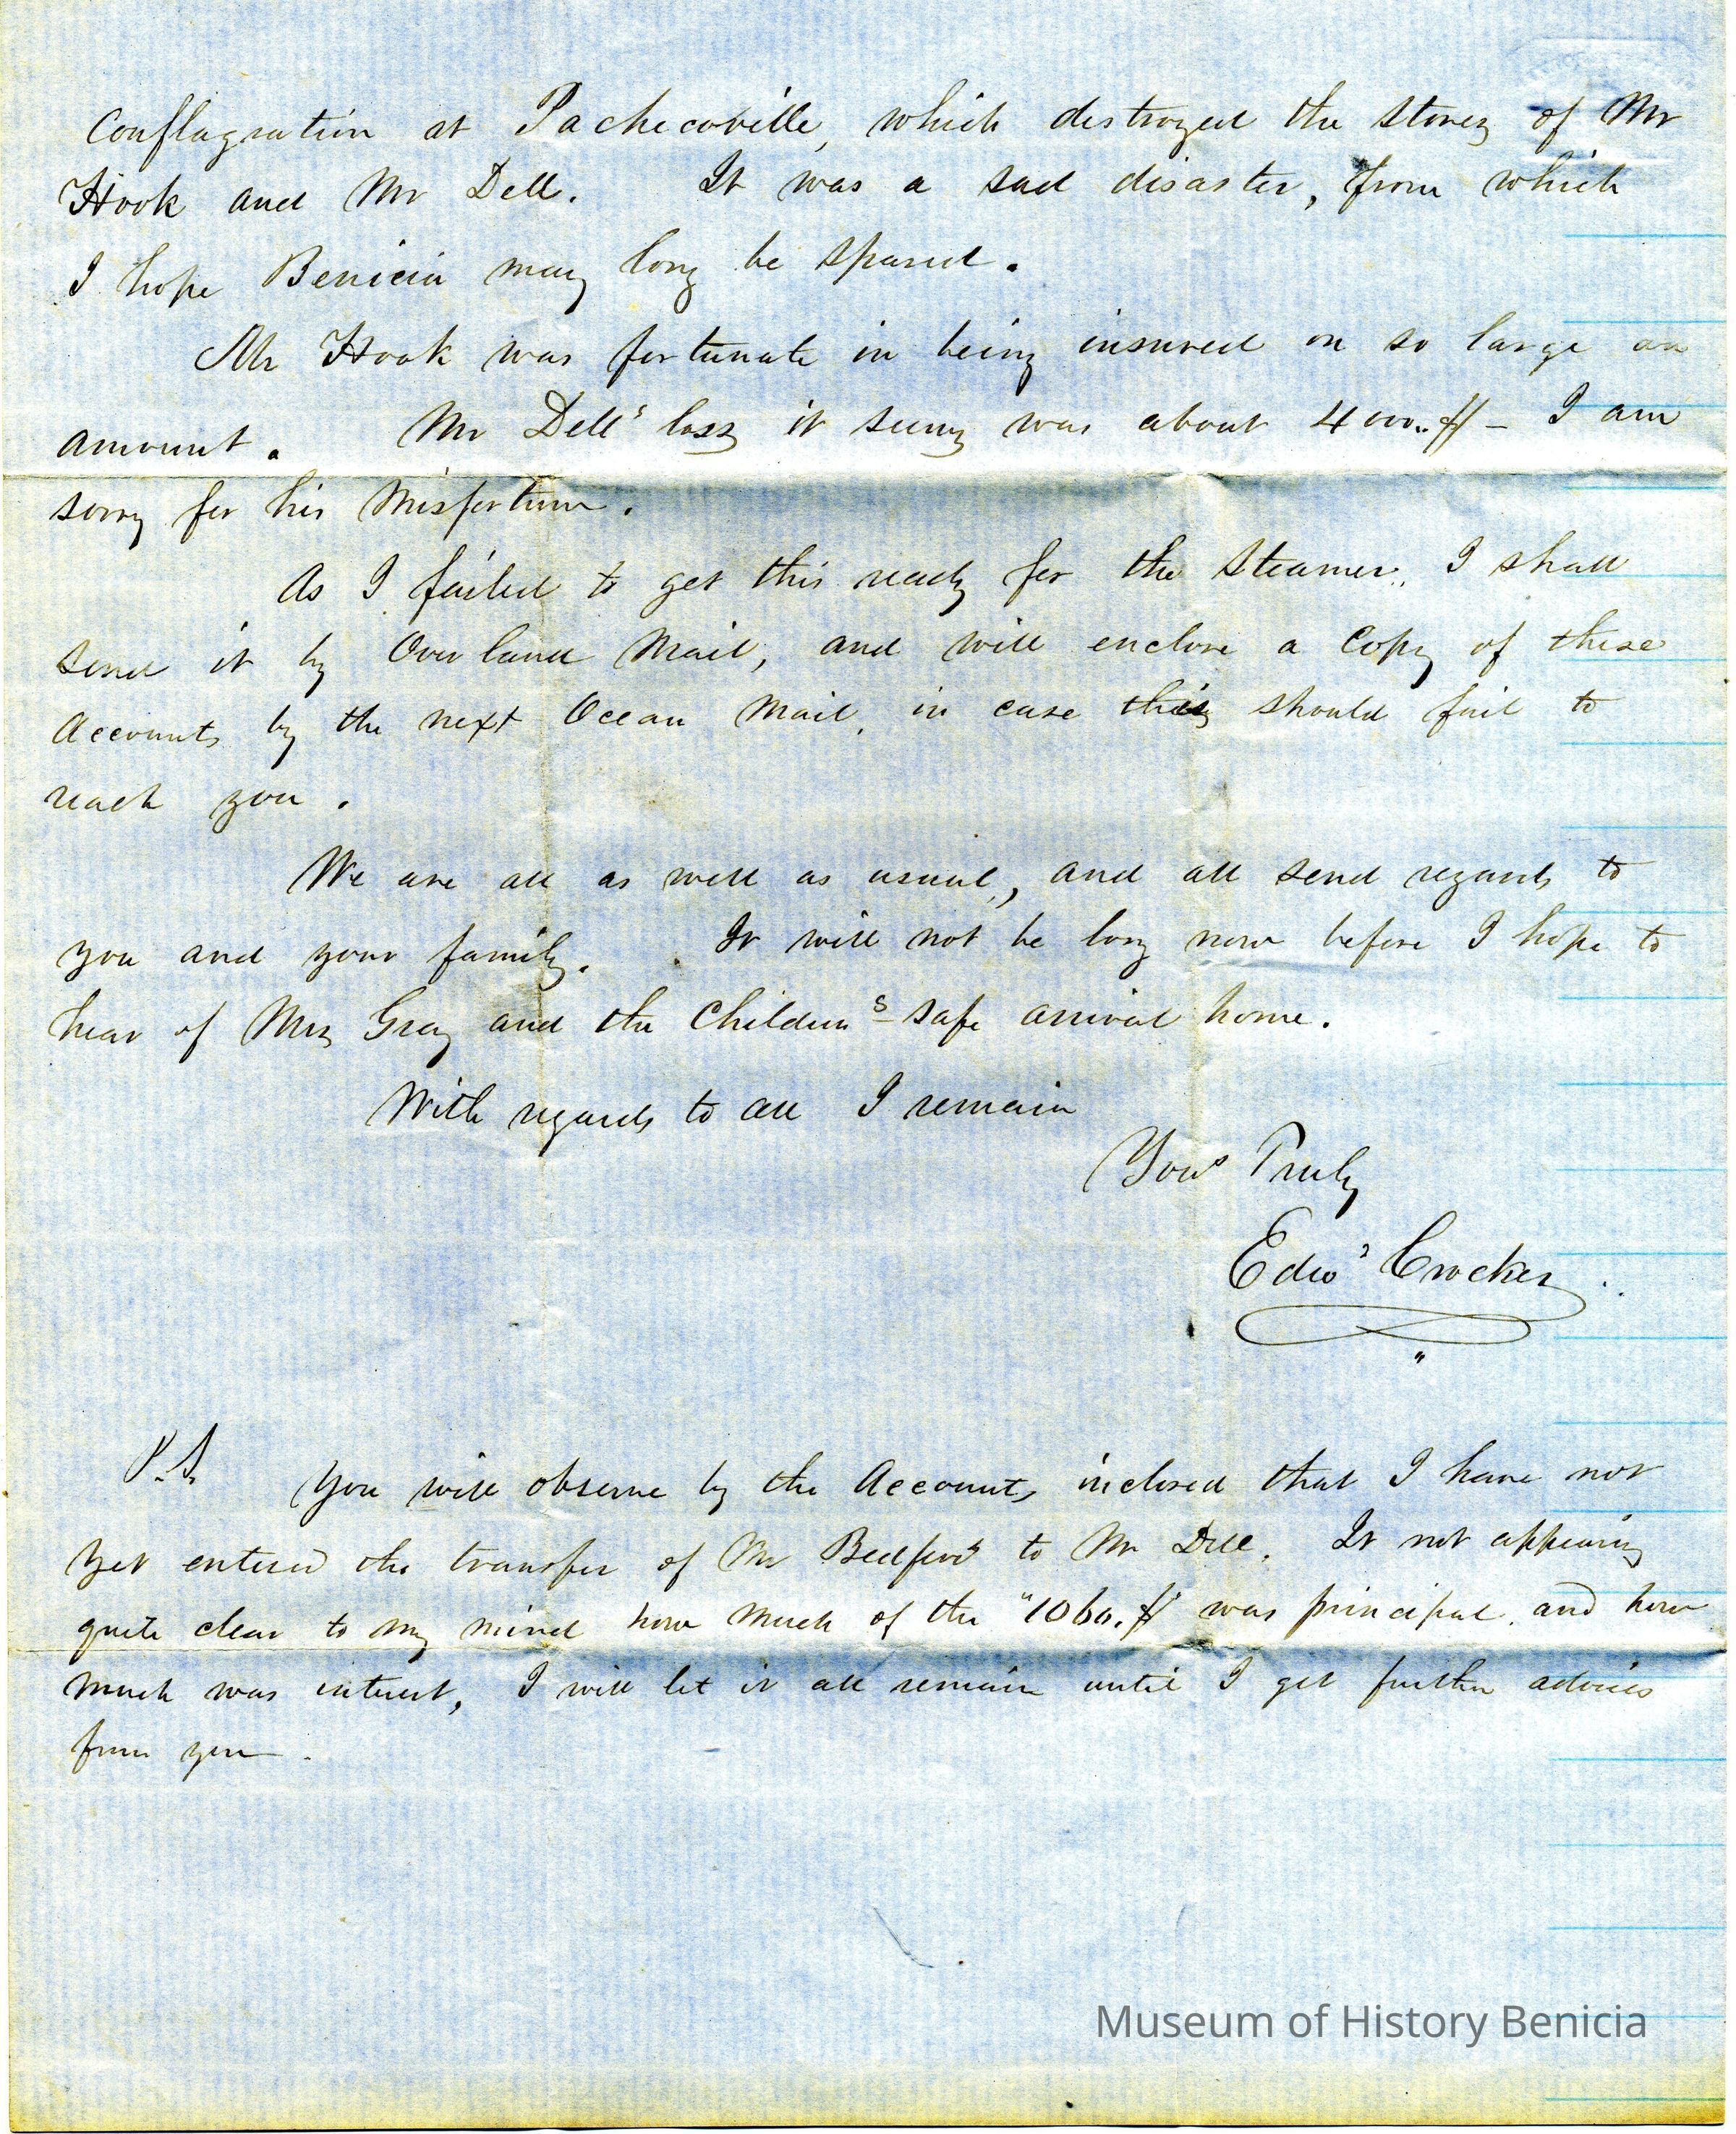 Conflagration at Pachecoville, which destroyed the stores of Mr
Hook and Mr Dell. It was a sad disaster, from which
I hope Benicia may long be spared.
Mr Hook was fortunate in being insured on so large an
amount. Mr Dell's loss it seems was about 4000..$ — I am
sorry for his misfortune.
As I failed to get this ready for the Steamer, I shall
send it by Overland Mail, and will enclose a Copy of these
Accounts by the next Ocean Mail, in case this should fail to
reach you.
We are all as well as usual, and all send regards to
you and your family. It will not be long now before I hope to
hear of Mrs Gray and the Childrens safe arrival home.
With regards to all I remain
Yours Truly
Edwd Crocker
P.S. You will observe by the Accounts inclosed that I have not
yet entered the transfer of Mr Bedford to Mr Dell. It not appearing
quite clear to my mind how much of the "1060.$" was principal, and how
much was interest, I will let it all remain until I get further advices
from you.
Museum of History Benicia